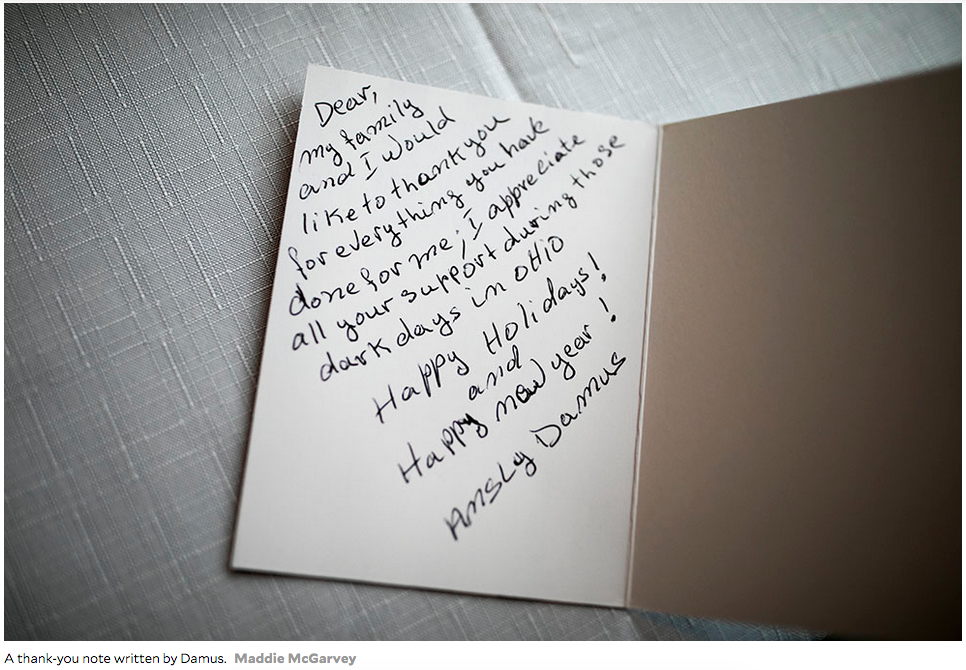 Dear,
my family
and I would
like to thank you
for everything you have
done for me; I appreciate
all your support during those
dark days in OHIO
Happy Holidays!
and
Happy new year!
Ansly Damus
A thank-you note written by Damus. Maddie McGarvey